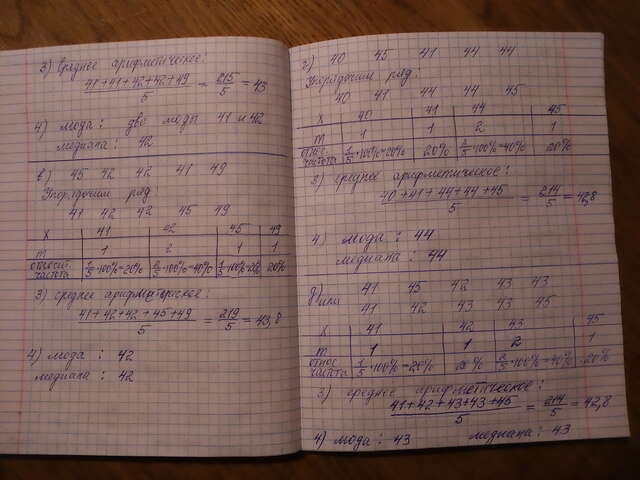 3) Среднее арифметическое:
41+41+42+42+49 / 5 = 215 / 5 = 43
4) мода: две моды 41 и 42
медиана: 42
в) 45 42 42 41 49
Упорядочим ряд:
41 42 42 45 49
X 41 42 45 49
m 1 2 1 1
относит. частота 1/5·100%=20% 2/5·100%=40% 1/5·100%=20% 20%
3) среднее арифметическое:
41+42+42+45+49 / 5 = 219 / 5 = 43,8
4) мода: 42
медиана: 42
г) 40 45 41 44 44
Упорядочим ряд:
40 41 44 44 45
X 40 41 44 45
m 1 1 2 1
относ. частота 1/5·100%=20% 20% 2/5·100%=40% 20%
3) среднее арифметическое:
40+41+44+44+45 / 5 = 214 / 5 = 42,8
4) мода: 44
медиана: 44
д) 41 45 42 43 43
41 42 43 43 45
X 41 42 43 45
m 1 1 2 1
относ. частота 1/5·100%=20% 20% 2/5·100%=40% 20%
3) среднее арифметическое:
41+42+43+43+45 / 5 = 214 / 5 = 42,8
4) мода: 43 медиана: 43